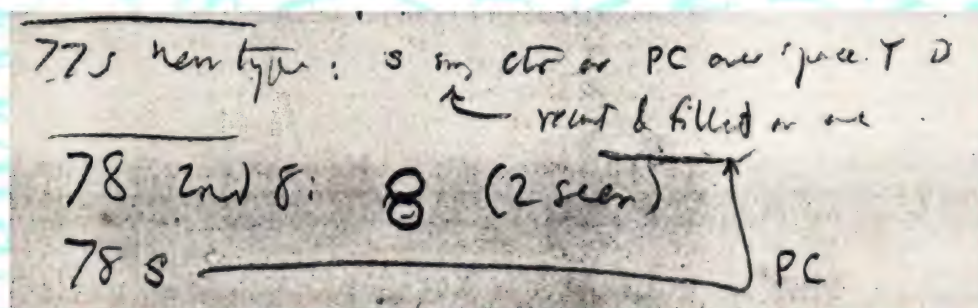 77s new type: s in ctr or PC over space. T D
recut & filled in one
78 2nd 8: 8 (2 seen)
78 s PC